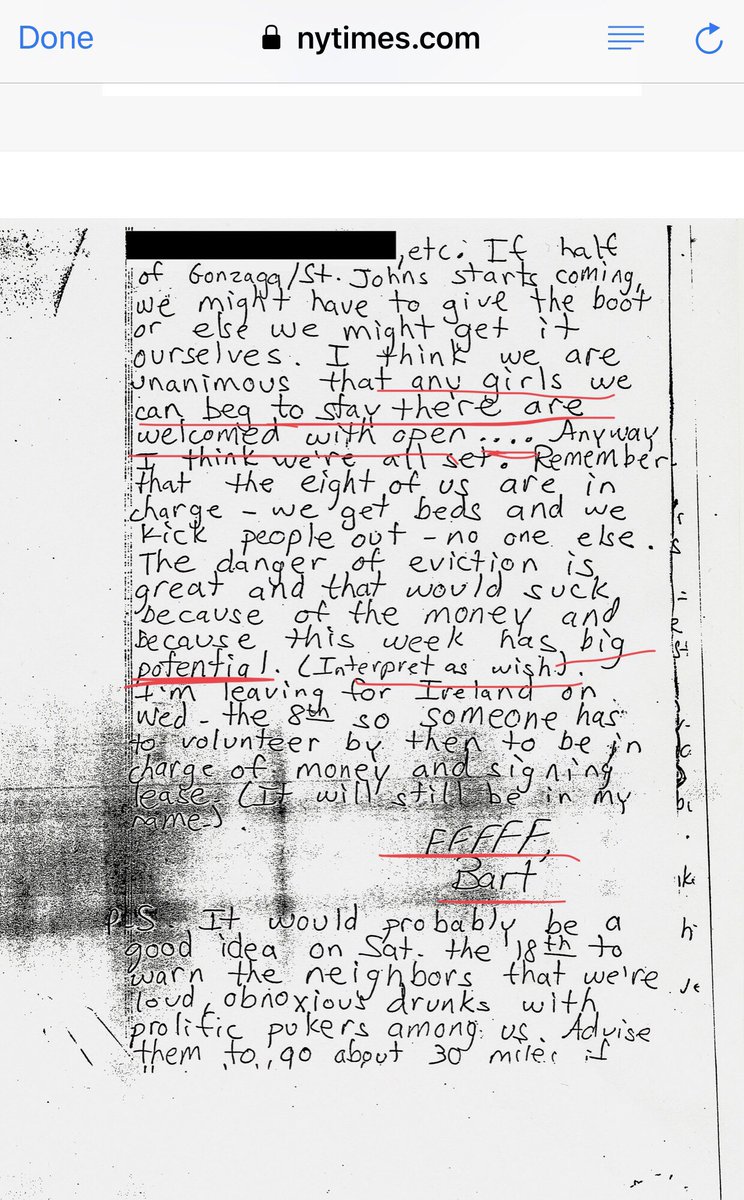 Done nytimes.com
,etc. If half
of Gonzaga/St. Johns starts coming,
we might have to give the boot
or else we might get it
ourselves. I think we are
unanimous that any girls we
can beg to stay there are
welcomed with open.... Anyway
I think we're all set. Remember
that the eight of us are in
charge - we get beds and we
kick people out - no one else.
The danger of eviction is
great and that would suck
because of the money and
because this week has big
potential. (Interpret as wish).
I'm leaving for Ireland on
Wed - the 8th so someone has
to volunteer by then to be in
charge of money and signing
lease. (It will still be in my
name.)
FFFFF,
Bart
P.S. It would probably be a
good idea on Sat. the 18th to
warn the neighbors that we're
loud, obnoxious drunks with
prolific pukers among us. Advise
them to go about 30 miles